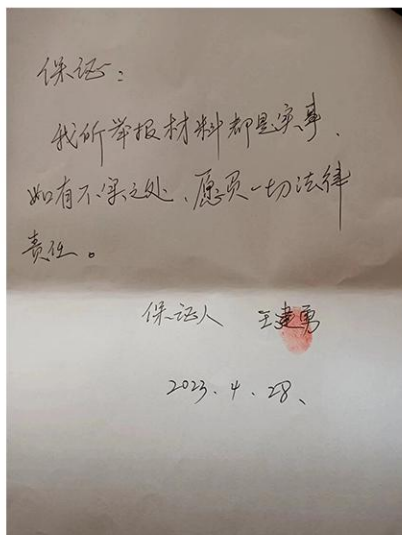 保证：
我所举报材料都是实事、
如有不实之处、愿负一切法律
责任。
保证人 王建勇
2023.4.28、